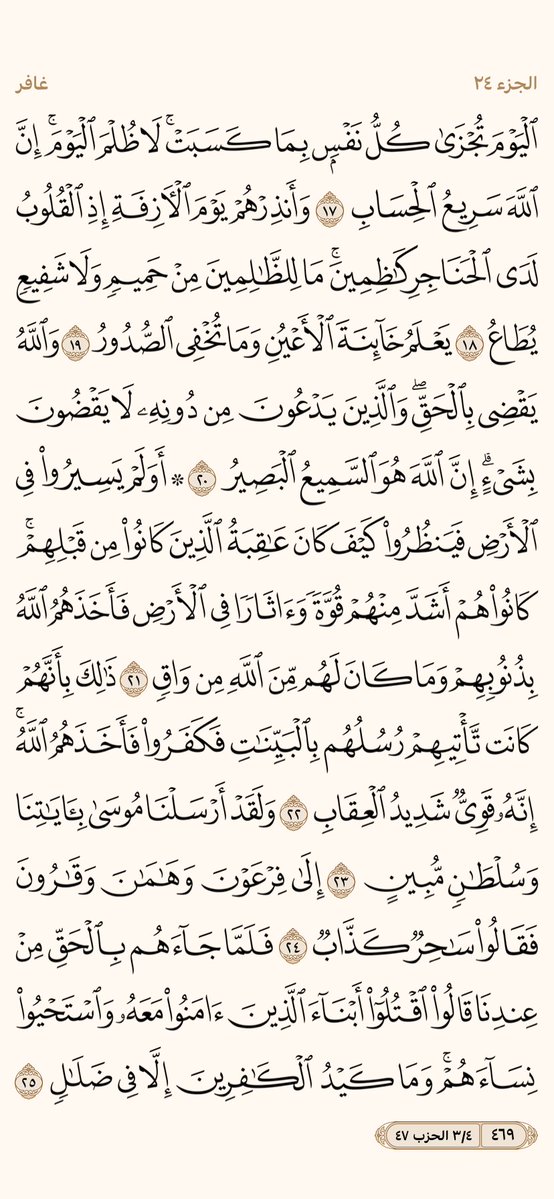 الجزء ٢٤
غافر
ٱلۡيَوۡمَ تُجۡزَىٰ كُلُّ نَفۡسِۭ بِمَا كَسَبَتۡۚ لَا ظُلۡمَ ٱلۡيَوۡمَۚ إِنَّ
ٱللَّهَ سَرِيعُ ٱلۡحِسَابِ ١٧ وَأَنذِرۡهُمۡ يَوۡمَ ٱلۡأٓزِفَةِ إِذِ ٱلۡقُلُوبُ
لَدَى ٱلۡحَنَاجِرِ كَٰظِمِينَۚ مَا لِلظَّٰلِمِينَ مِنۡ حَمِيمٖ وَلَا شَفِيعٖ
يُطَاعُ ١٨ يَعۡلَمُ خَآئِنَةَ ٱلۡأَعۡيُنِ وَمَا تُخۡفِي ٱلصُّدُورُ ١٩ وَٱللَّهُ
يَقۡضِي بِٱلۡحَقِّۖ وَٱلَّذِينَ يَدۡعُونَ مِن دُونِهِۦ لَا يَقۡضُونَ
بِشَيۡءٍۗ إِنَّ ٱللَّهَ هُوَ ٱلسَّمِيعُ ٱلۡبَصِيرُ ٢٠ * أَوَلَمۡ يَسِيرُواْ فِي
ٱلۡأَرۡضِ فَيَنظُرُواْ كَيۡفَ كَانَ عَٰقِبَةُ ٱلَّذِينَ كَانُواْ مِن قَبۡلِهِمۡۚ
كَانُواْ هُمۡ أَشَدَّ مِنۡهُمۡ قُوَّةٗ وَءَاثَارٗا فِي ٱلۡأَرۡضِ فَأَخَذَهُمُ ٱللَّهُ
بِذُنُوبِهِمۡ وَمَا كَانَ لَهُم مِّنَ ٱللَّهِ مِن وَاقٖ ٢١ ذَٰلِكَ بِأَنَّهُمۡ
كَانَت تَّأۡتِيهِمۡ رُسُلُهُم بِٱلۡبَيِّنَٰتِ فَكَفَرُواْ فَأَخَذَهُمُ ٱللَّهُۚ
إِنَّهُۥ قَوِيّٞ شَدِيدُ ٱلۡعِقَابِ ٢٢ وَلَقَدۡ أَرۡسَلۡنَا مُوسَىٰ بِـَٔايَٰتِنَا
وَسُلۡطَٰنٖ مُّبِينٍ ٢٣ إِلَىٰ فِرۡعَوۡنَ وَهَٰمَٰنَ وَقَٰرُونَ
فَقَالُواْ سَٰحِرٞ كَذَّابٞ ٢٤ فَلَمَّا جَآءَهُم بِٱلۡحَقِّ مِنۡ
عِندِنَا قَالُواْ ٱقۡتُلُوٓاْ أَبۡنَآءَ ٱلَّذِينَ ءَامَنُواْ مَعَهُۥ وَٱسۡتَحۡيُواْ
نِسَآءَهُمۡۚ وَمَا كَيۡدُ ٱلۡكَٰفِرِينَ إِلَّا فِي ضَلَٰلٖ ٢٥
٤٦٩ ٣/٤ الحزب ٤٧